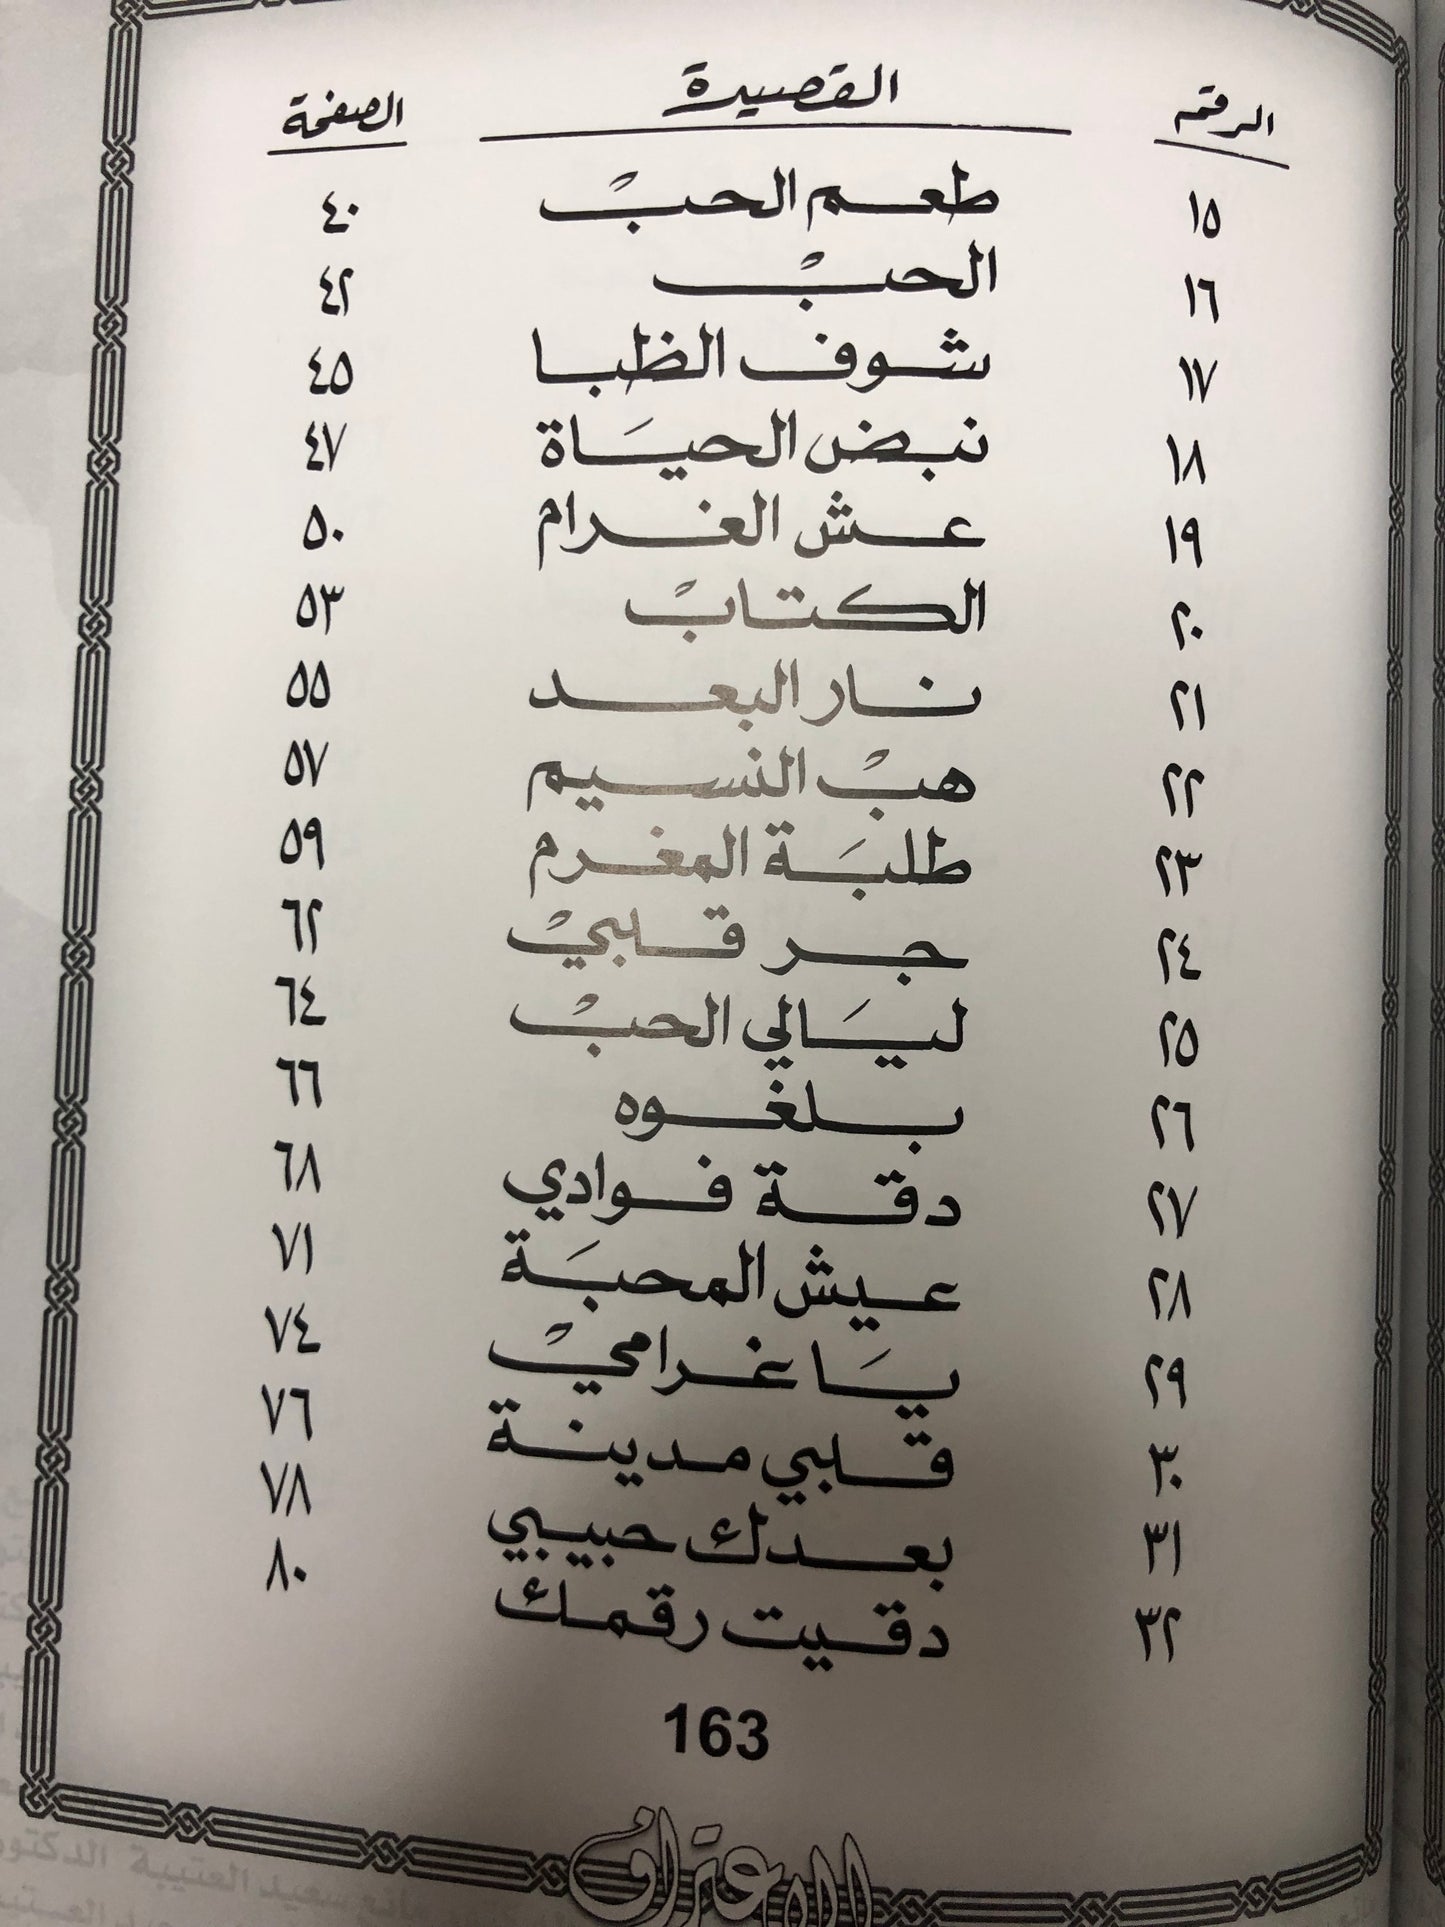 الرقم القصيدة الصفحة
١٥ طعم الحب ٤٠
١٦ الحب ٤٢
١٧ شوف الظبا ٤٥
١٨ نبض الحياة ٤٧
١٩ عش الغرام ٥٠
٢٠ الكتاب ٥٣
٢١ نار البعد ٥٥
٢٢ هب النسيم ٥٧
٢٣ طلبة المغرم ٥٩
٢٤ جر قلبي ٦٢
٢٥ ليالي الحب ٦٤
٢٦ بلغوه ٦٦
٢٧ دقة فوادي ٦٨
٢٨ عيش المحبة ٧١
٢٩ يا غرامي ٧٤
٣٠ قلبي مدينة ٧٦
٣١ بعدك حبيبي ٧٨
٣٢ دقيت رقمك ٨٠
163
الاعتراف